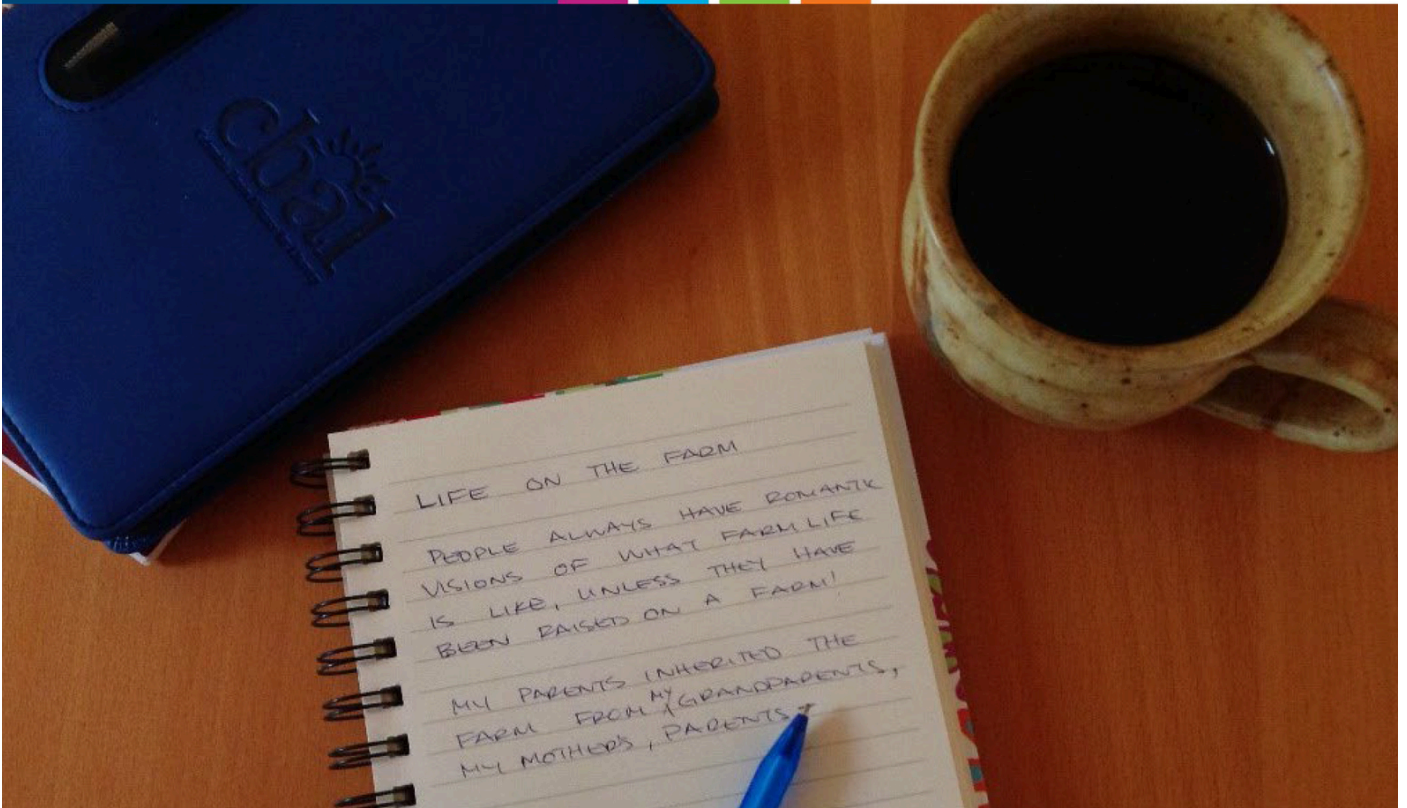 cbal
LIFE ON THE FARM
PEOPLE ALWAYS HAVE ROMANTIC
VISIONS OF WHAT FARM LIFE
IS LIKE, UNLESS THEY HAVE
BEEN RAISED ON A FARM!
MY PARENTS INHERITED THE
FARM FROM MY GRANDPARENTS,
MY MOTHERS, PARENTS